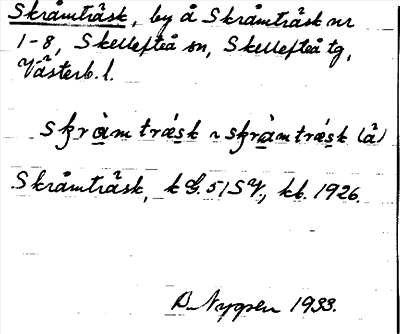 Skråmträsk, by å Skråmträsk nr
1-8, Skellefteå sn, Skellefteå tg,
Västerb. l.
skràmtrǽsk ~ skràmtrǽsk (å)
Skråmträsk, k G. 51 SV, kb. 1926.
B. Nygren 1933.